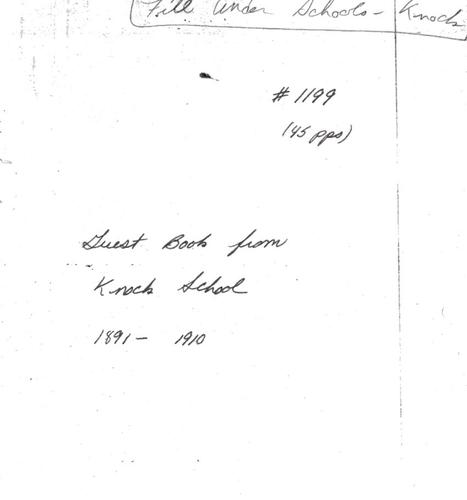 File Under Schools - Knock
# 1199
(45 pps)
Guest Book from
Knock School
1891 - 1910